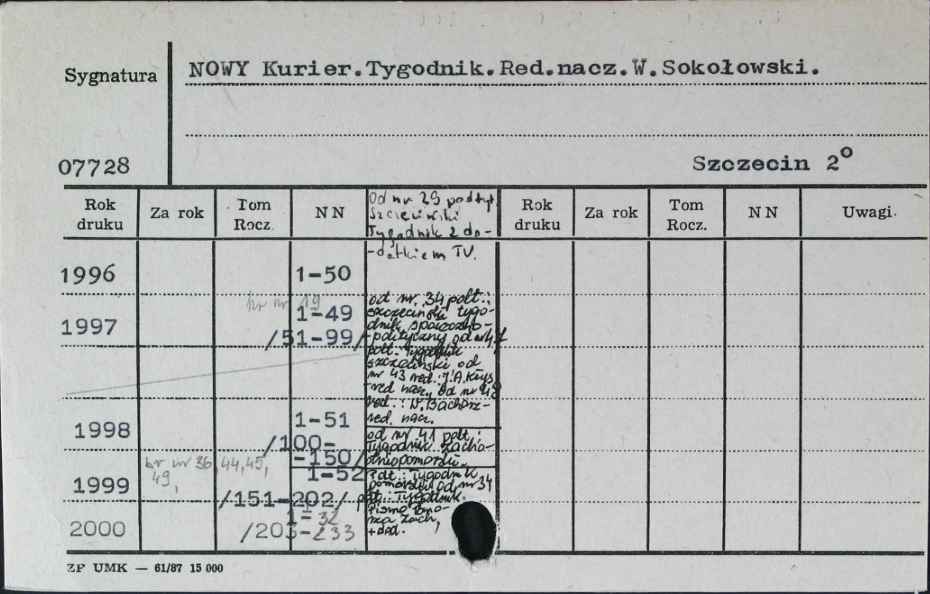 Sygnatura
NOWY Kurier.Tygodnik.Red.nacz.W.Sokołowski.
07728
Szczecin 2°
Rok druku
Za rok
Tom Rocz.
NN
Od nr 29 podtyt.
Szczeciński
Tygodnik z do-
-datkiem TV.
Rok druku
Za rok
Tom Rocz.
NN
Uwagi.
1996
1-50
br nr 19
1997
1-49
/51-99/
od nr. 34 podt.:
szczeciński tygo-
dnik społeczno-
-polityczny od nr 41
podt. Tygodnik
szczeciński od
nr 43 red.: J.A.
red nacz, od nr 48
red.: W.
red. nacz.
1998
1-51
/100-
-150/
od nr 41 podt.:
Tygodnik zacho-
dniopomorski.
br nr 36, 44, 45,
49,
1999
1-52
/151-202/
Pdt.: Tygodnik
pomorski od nr 34
pdt.: Tygodnik.
Pismo Pomo-
rza Zach,
+ dod.
2000
1-32
/203-233
ZF UMK — 61/87 15 000